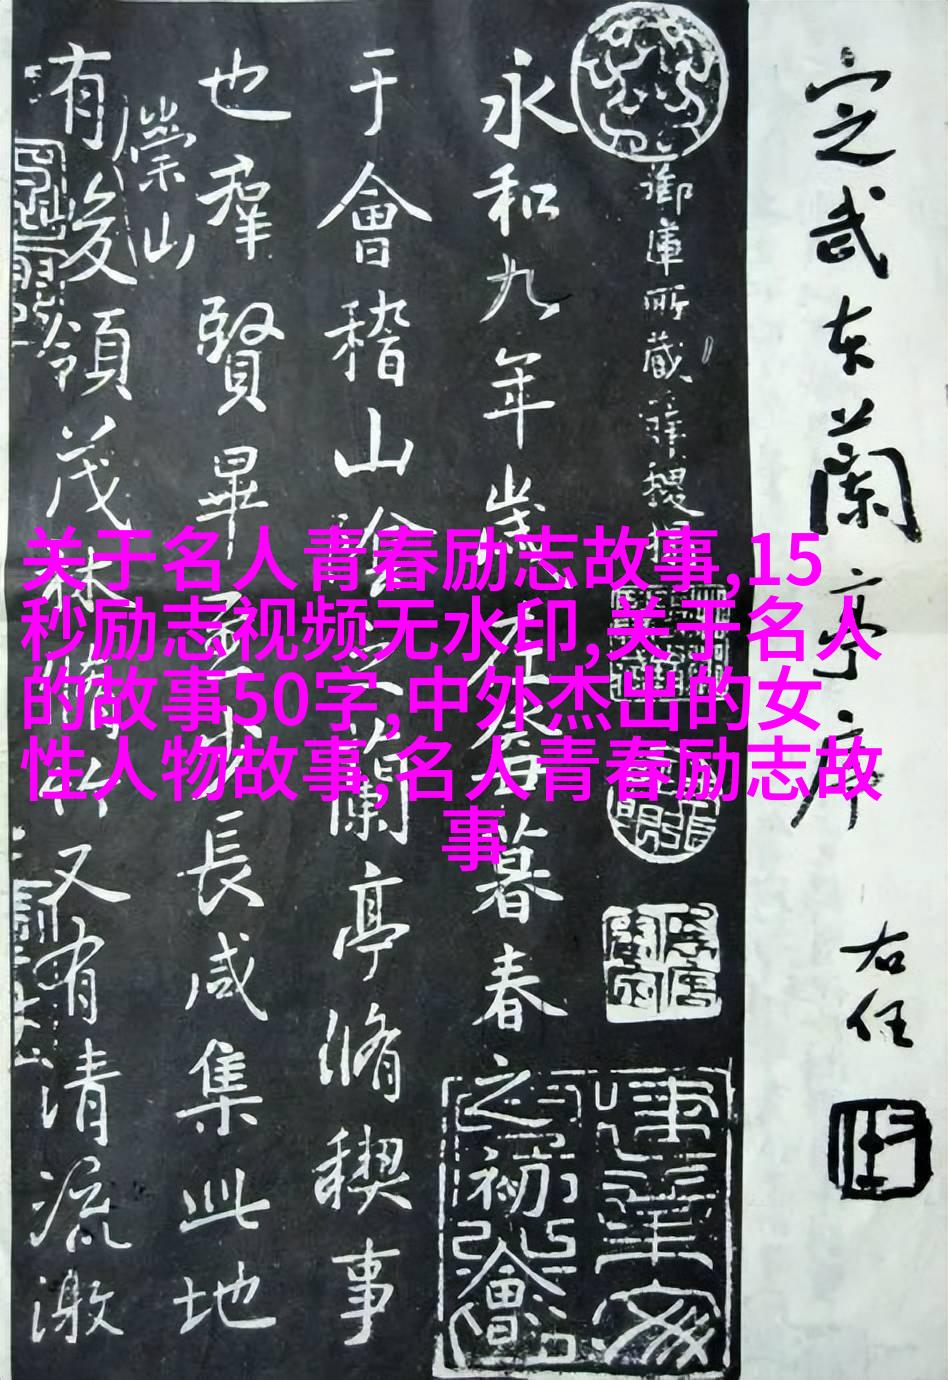 定武本蘭亭序
右任
御庫所藏薛稷
永和九年歲在癸丑暮春之初會
于會稽山陰之蘭亭脩禊事
也羣賢畢至少長咸集此地
崇山
有峻領茂林脩竹又有清流激
关于名人青春励志故事,15
秒励志视频无水印,关于名人
的故事50字,中外杰出的女
性人物故事,名人青春励志故
事